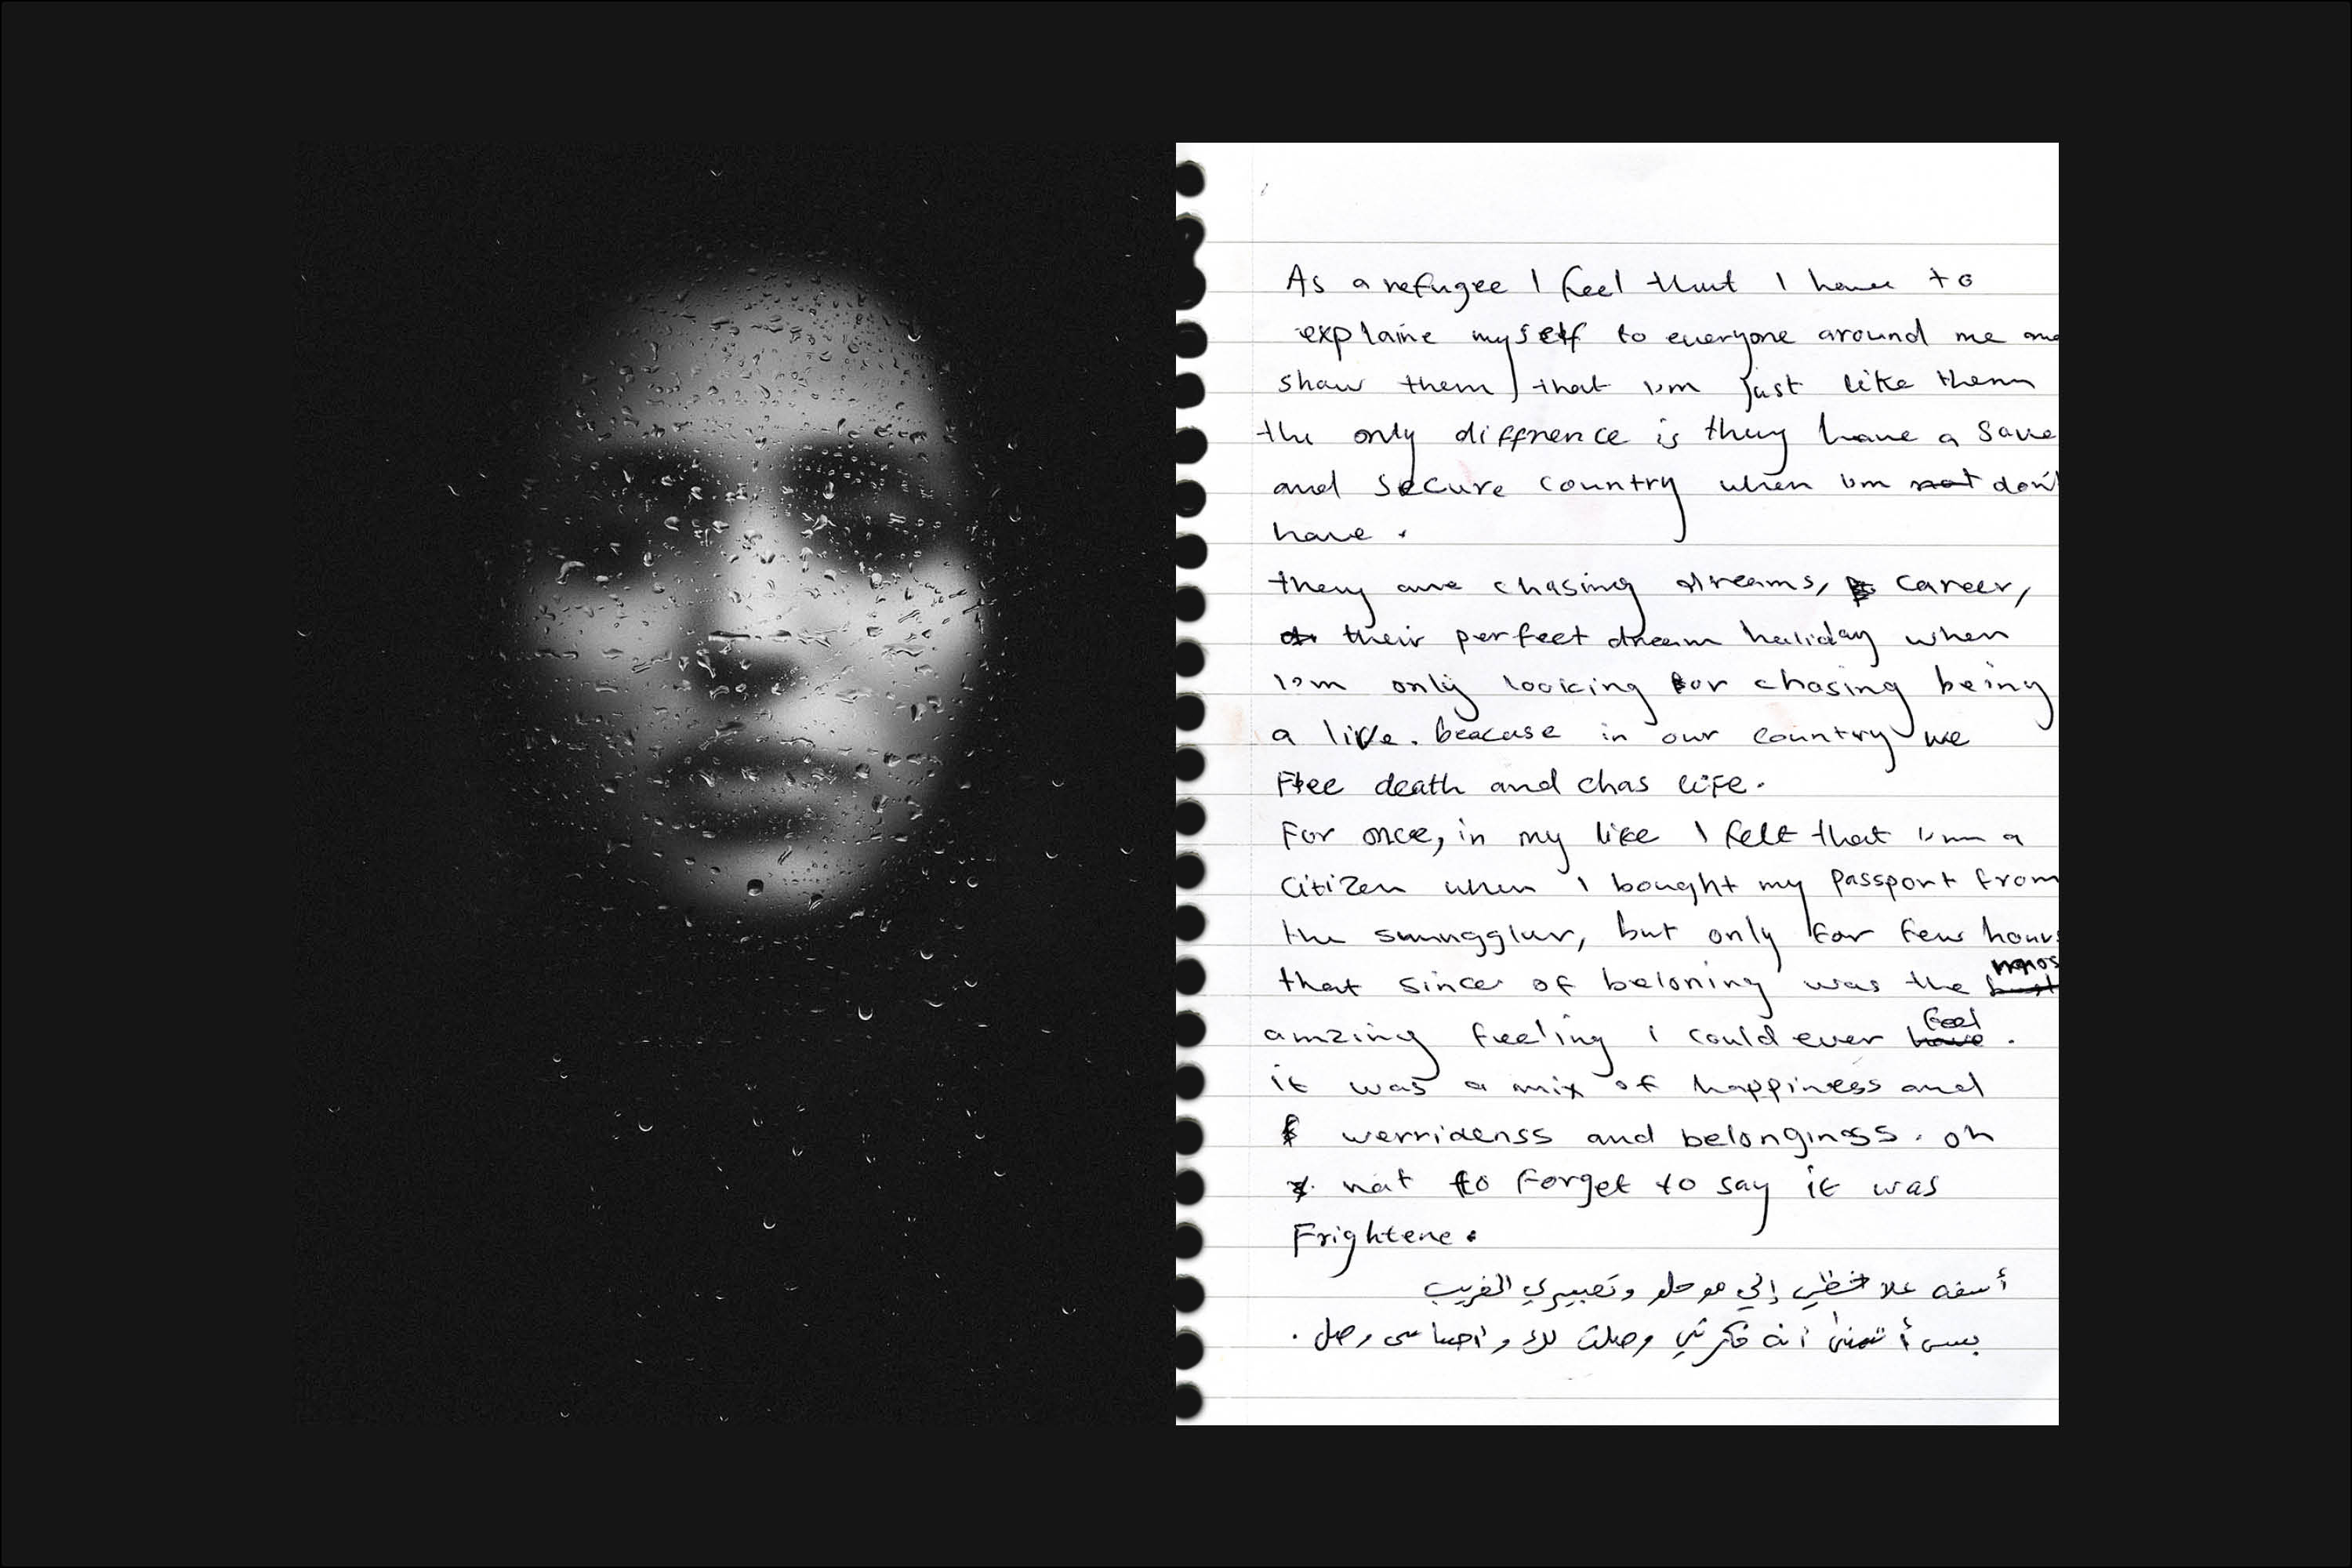 As a refugee I feel that I have to
explaine myself to everyone around me
show them that i'm just like them
the only diffrence is they have a save
and secure country when i'm not don't
have.
they are chasing dreams, career,
their perfect dream haliday when
i'm only looking for chasing being
a live. beacase in our country we
Flee death and chas life.
For once, in my life I felt that i'm a
citizen when I bought my passport from
the smugglur, but only for few hours
that since of beloning was the
amzing feeling I could ever have feel.
it was a mix of happiness and
werridenss and belonginss. oh
not to forget to say it was
Frightene.
أسفه علا خطي إلي مو حلو وتعبيري الغريب
بس أتمنى انه فكرتي وصلت لك واحساسي وصل.